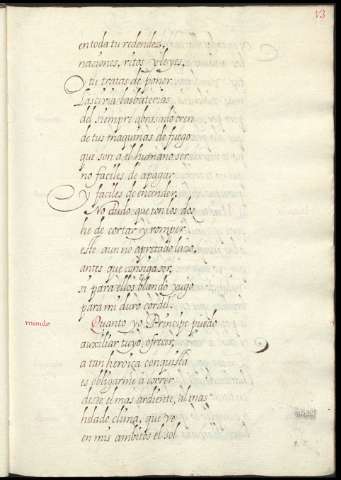 13
en toda tu redondez,
naciones, ritos y leyes,
O tu tratas de poner
las baterias
del siempre abrasado oren
de tus maquinas de fuego
que son a el humano ser
no faciles de apagar
y faciles de encender.
No dudo que con los dos
he de cortar y romper
este aun no apretado lazo,
antes que consiga ser,
si para ellos blando yugo
para mi duro cordel.
Quanto yo Principe puedo
auxiliar tuyo, ofrecer,
a tan heroica conquista
es obligarme a correr
desde el mas ardiente, al mas
helado clima, que ve
en mis ambitos el sol